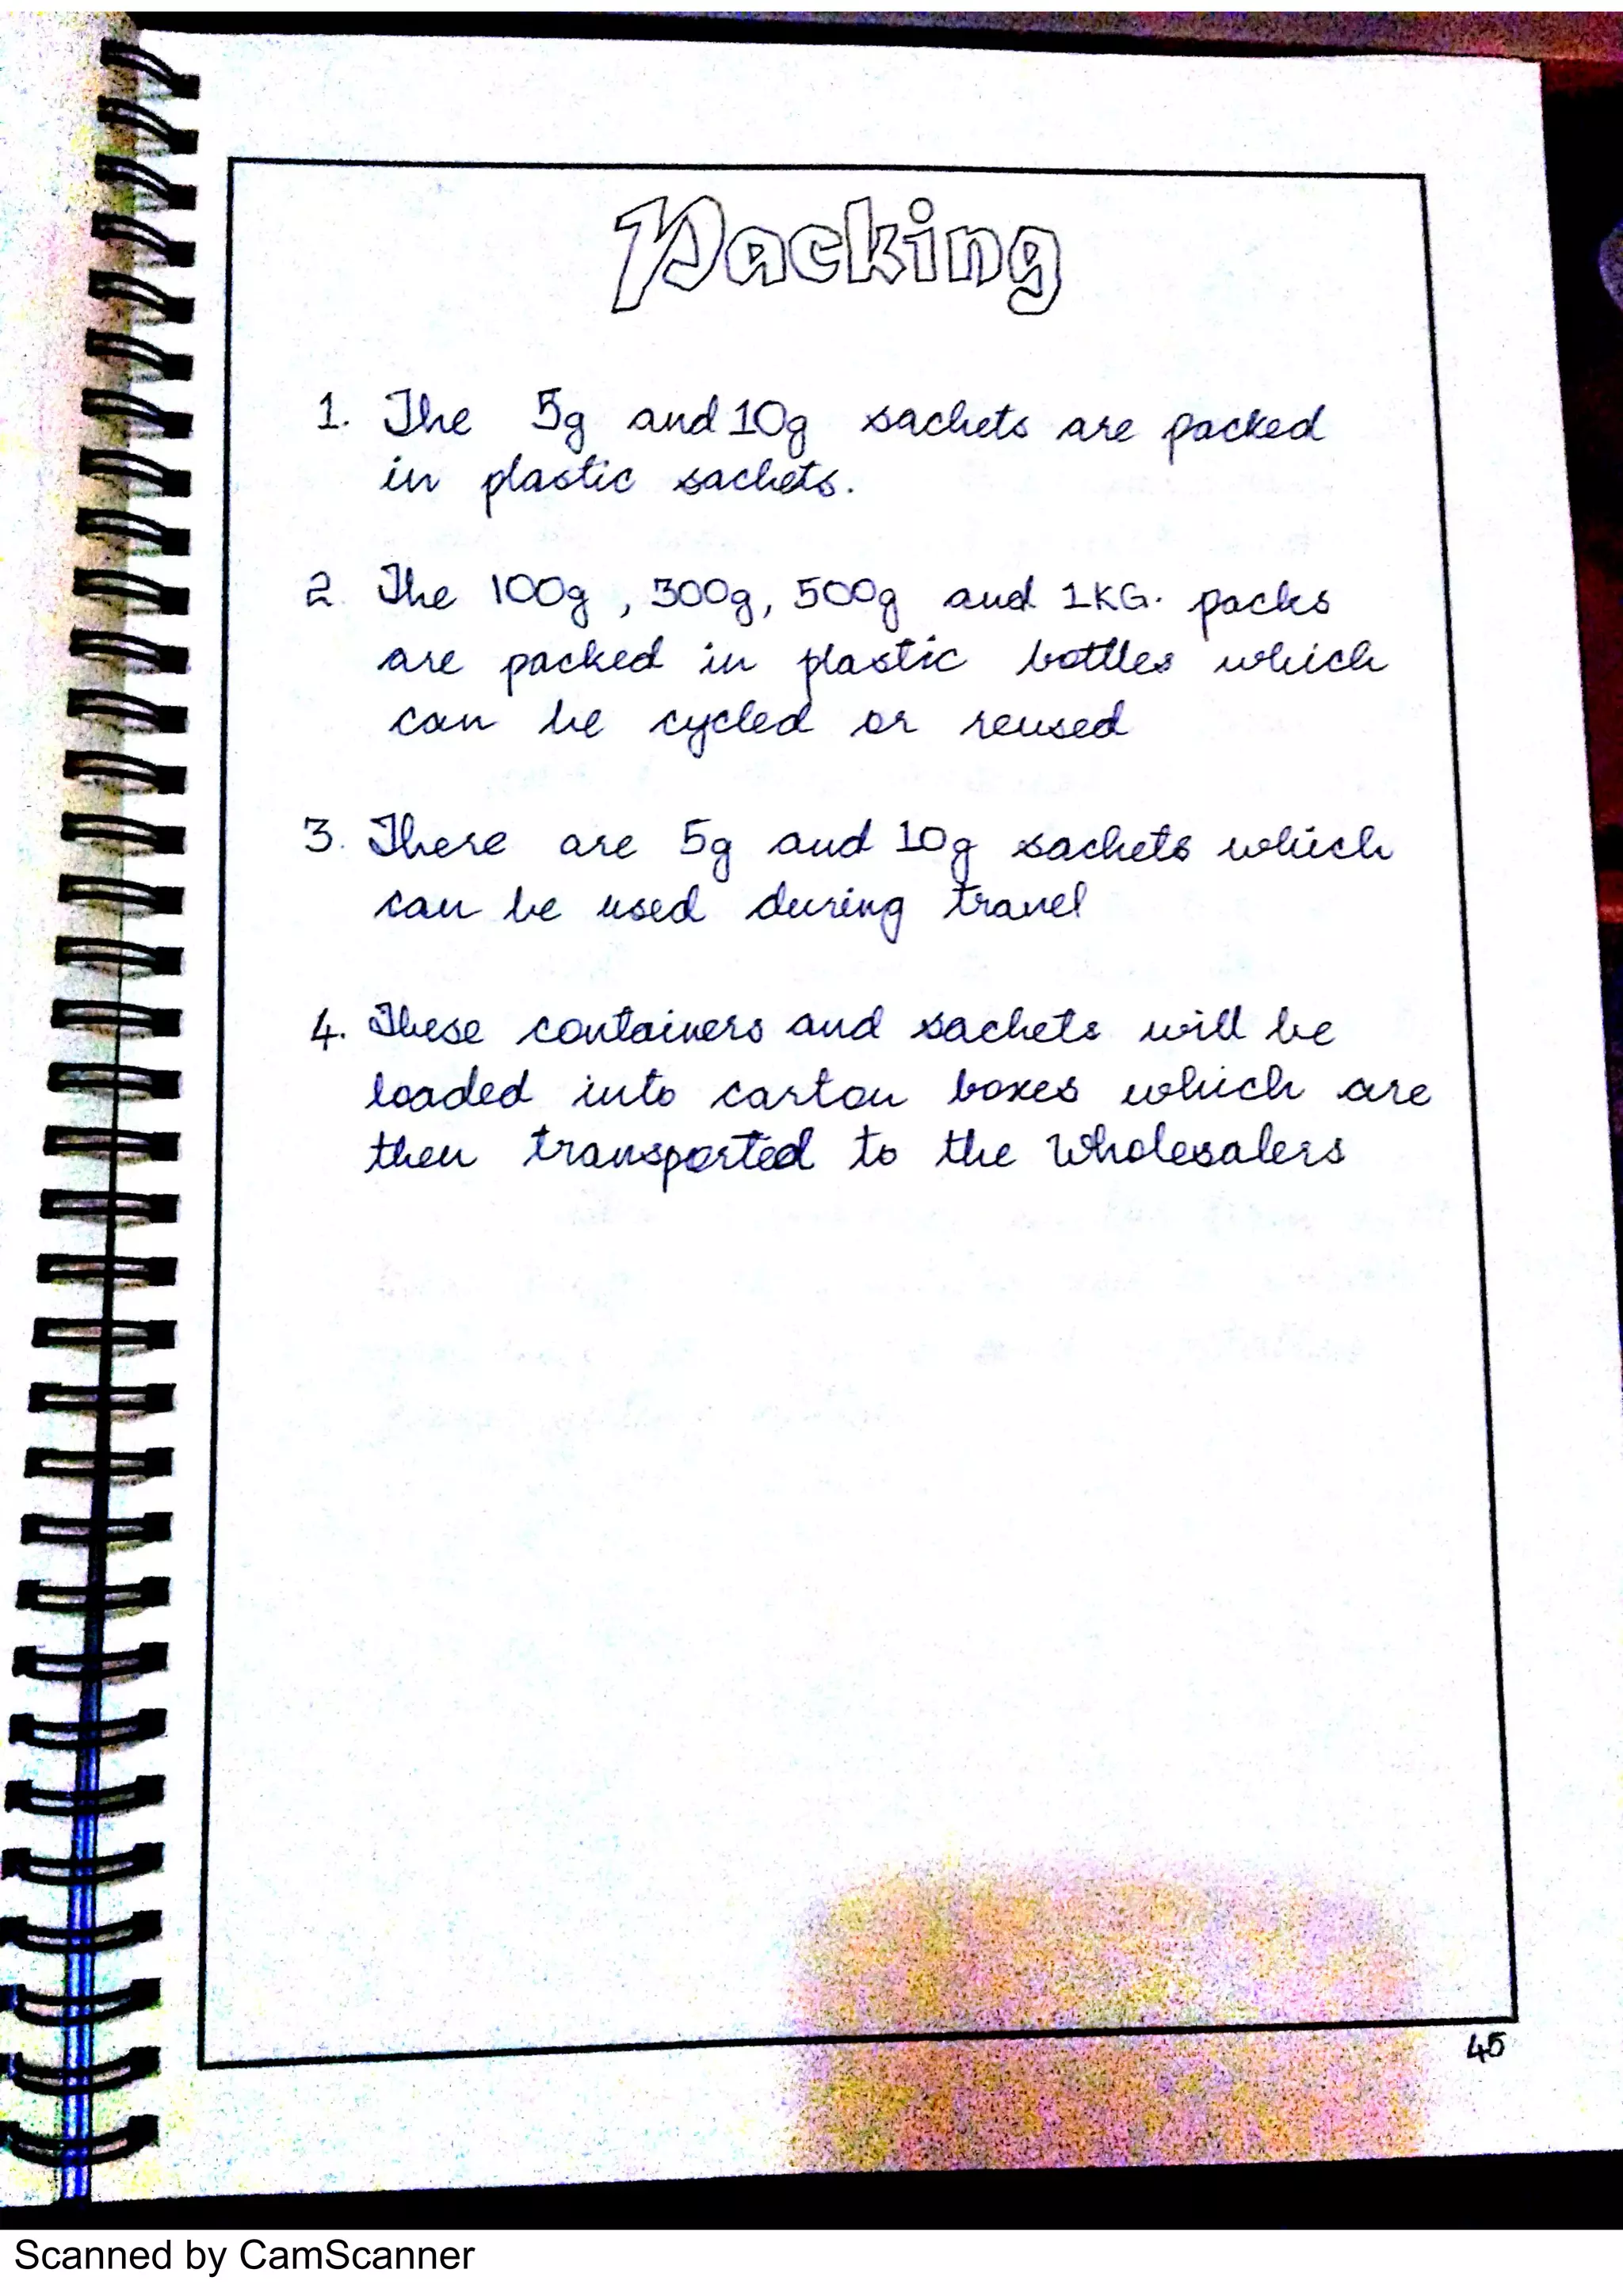 Packing
1. The 5g and 10g sachets are packed
in plastic sachets.
2. The 100g, 300g, 500g and 1KG. packs
are packed in plastic bottles which
can be cycled or reused
3. There are 5g and 10g sachets which
can be used during travel
4. These containers and sachets will be
loaded into carton boxes which are
then transported to the Wholesalers
45
Scanned by CamScanner